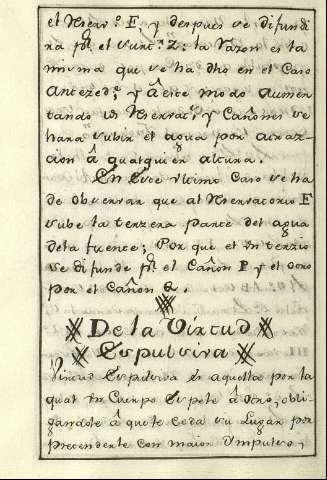 el Reserv.º E, y despues se difundi
ra p.r el Surt.º Z: la razon es la
misma que se ha dho en el Caso
Antezed.e; y â este modo aumen
tando los Reservac.s y Cañones se
hara subir el agua por atraz-
cion â qualquier altura.
En este ultimo Caso se ha
de observar que al Reservatorio F
sube la terzera parte del agua
dela fuente; Por que el un terzio
se difunde p.r el Cañon P y el otro
por el Cañon Q.
De la Virtud
Espulsiva
Virtud Espulsiva es aquella por la
qual un Cuerpo Espele â otro, obli-
gandole â que le ceda su Lugar por
precendente con maior Ympulso,